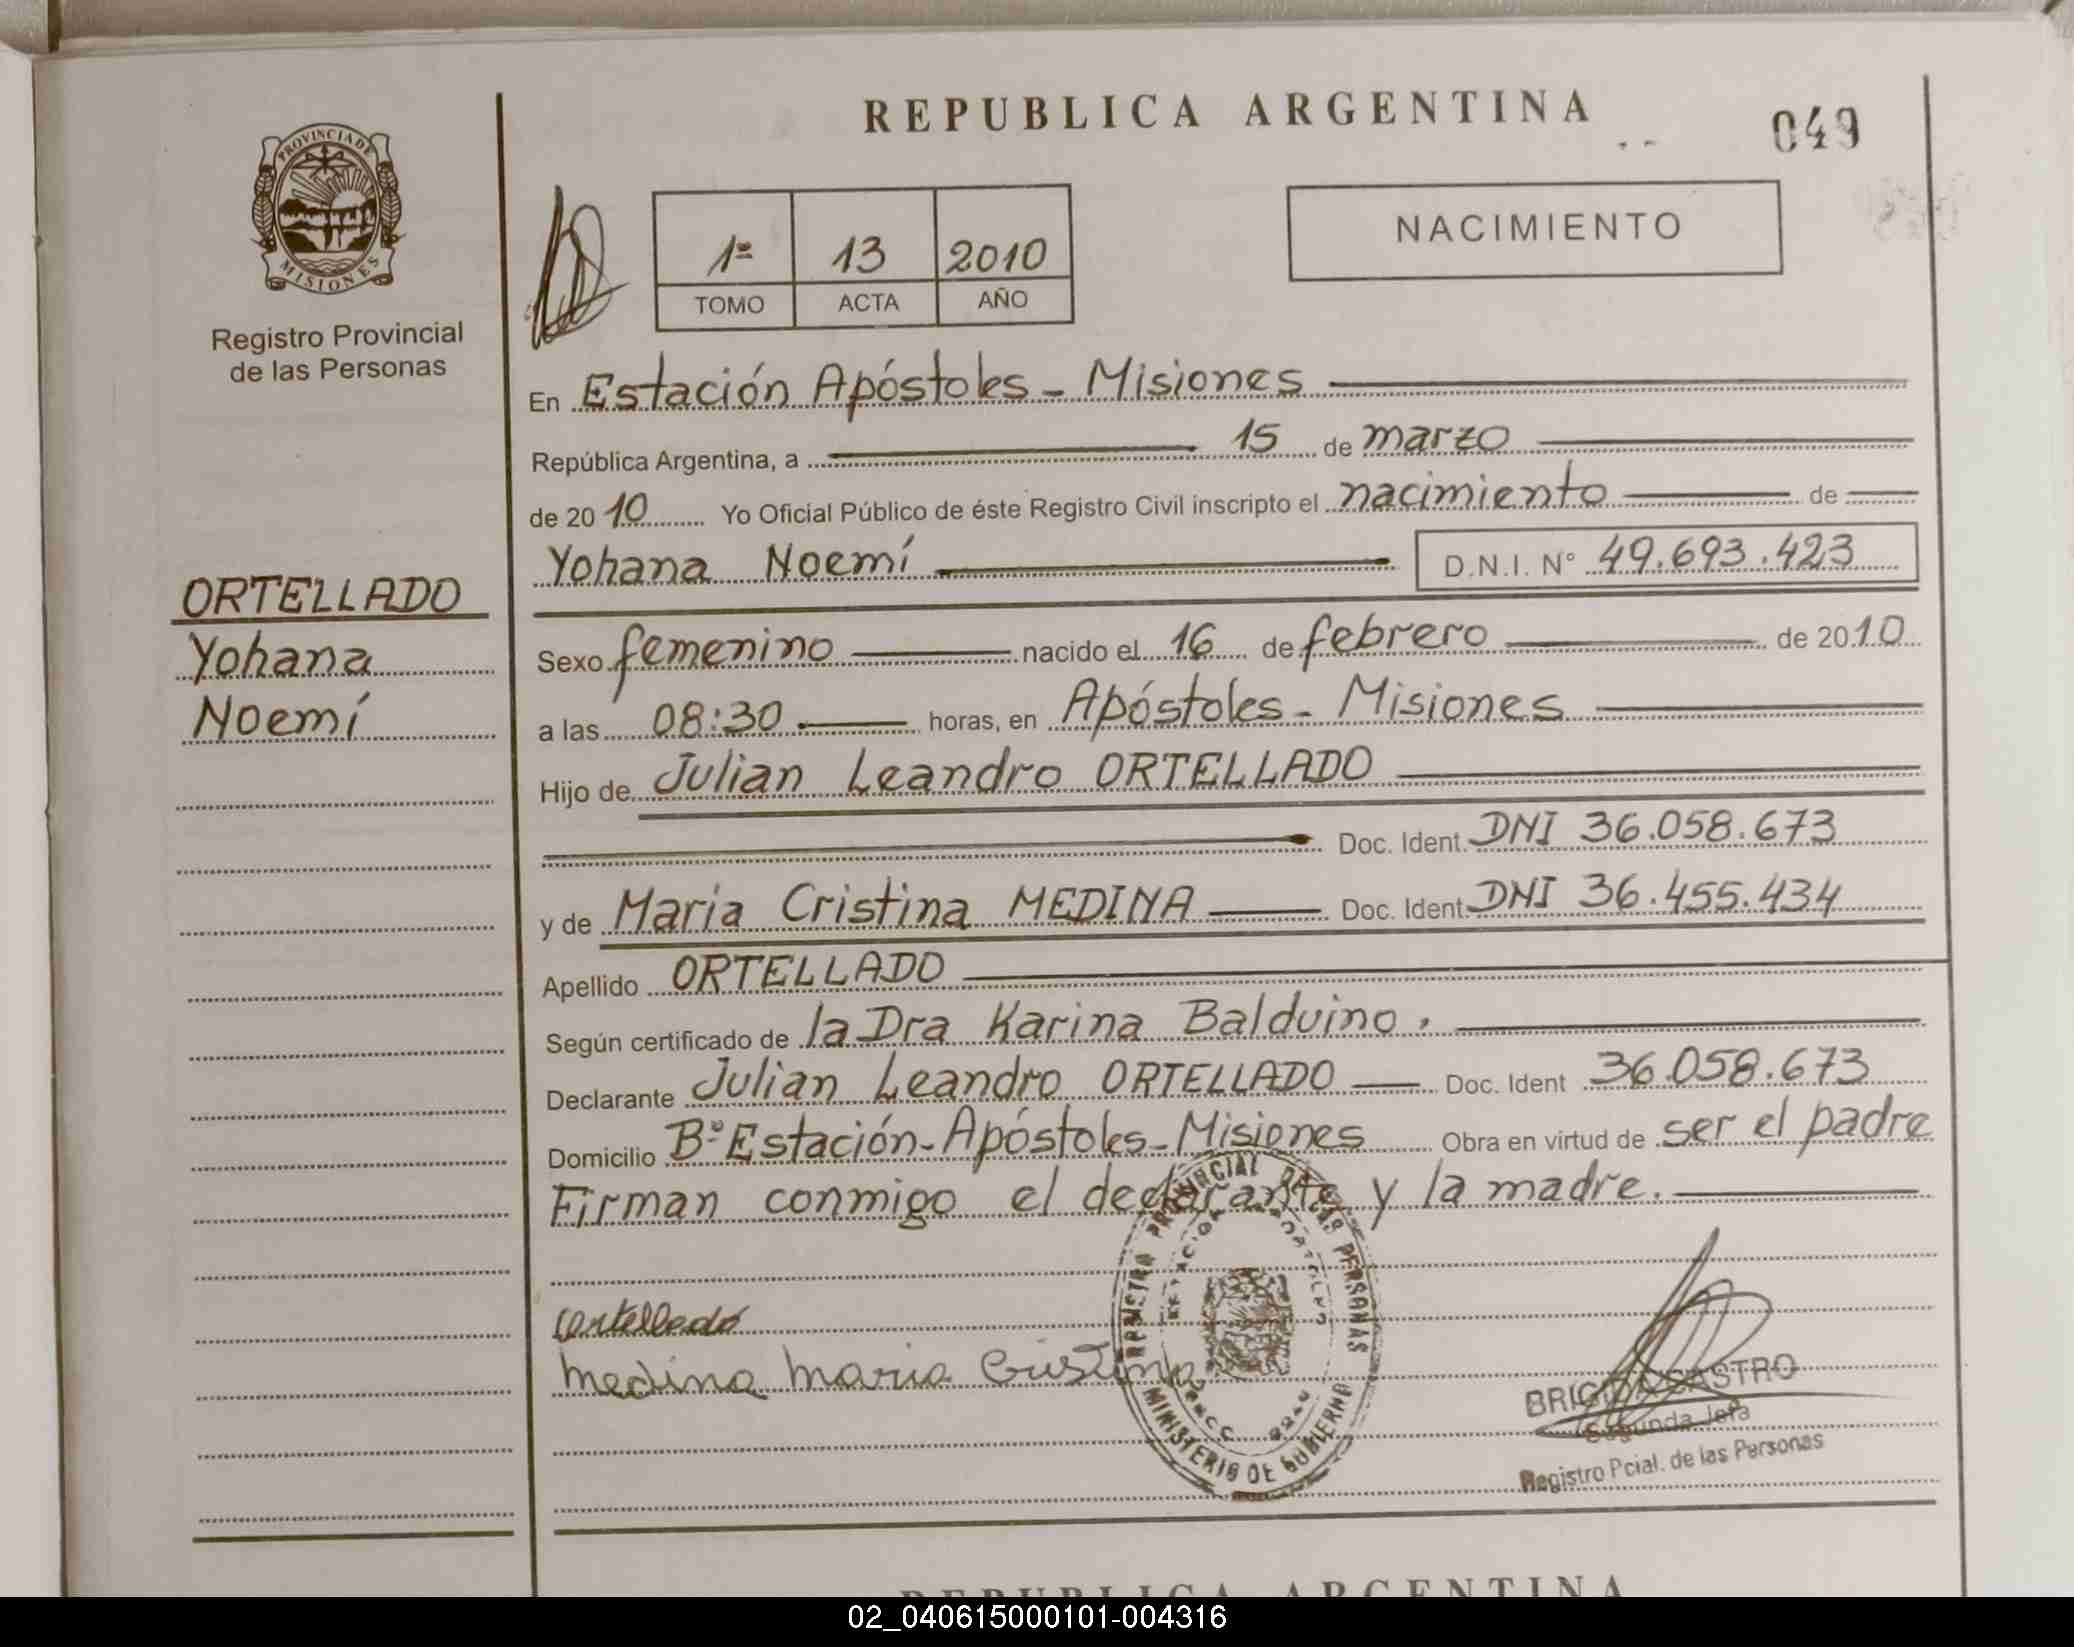 REPUBLICA ARGENTINA
049
PROVINCIA DE
MISIONES
Registro Provincial
de las Personas
1ª 13 2010
TOMO ACTA AÑO
NACIMIENTO
En Estación Apóstoles - Misiones
República Argentina, a 15 de marzo
de 2010 Yo Oficial Público de éste Registro Civil inscripto el nacimiento de
Yohana Noemí D.N.I. N° 49.693.423
ORTELLADO
Yohana
Noemí
Sexo femenino nacido el 16 de febrero de 2010
a las 08:30 horas, en Apóstoles - Misiones
Hijo de Julian Leandro ORTELLADO
Doc. Ident. DNI 36.058.673
y de Maria Cristina MEDINA Doc. Ident. DNI 36.455.434
Apellido ORTELLADO
Según certificado de la Dra Karina Balduino.
Declarante Julian Leandro ORTELLADO Doc. Ident 36.058.673
Domicilio B° Estación - Apóstoles - Misiones Obra en virtud de ser el padre
Firman conmigo el declarante y la madre.
REGISTRO PROVINCIAL DE LAS PERSONAS
MINISTERIO DE GOBIERNO
Ortellado
Medina Maria Cristina
BRIGIDA CASTRO
Segunda Jefa
Registro Pcial. de las Personas
REPUBLICA ARGENTINA
02_040615000101-004316